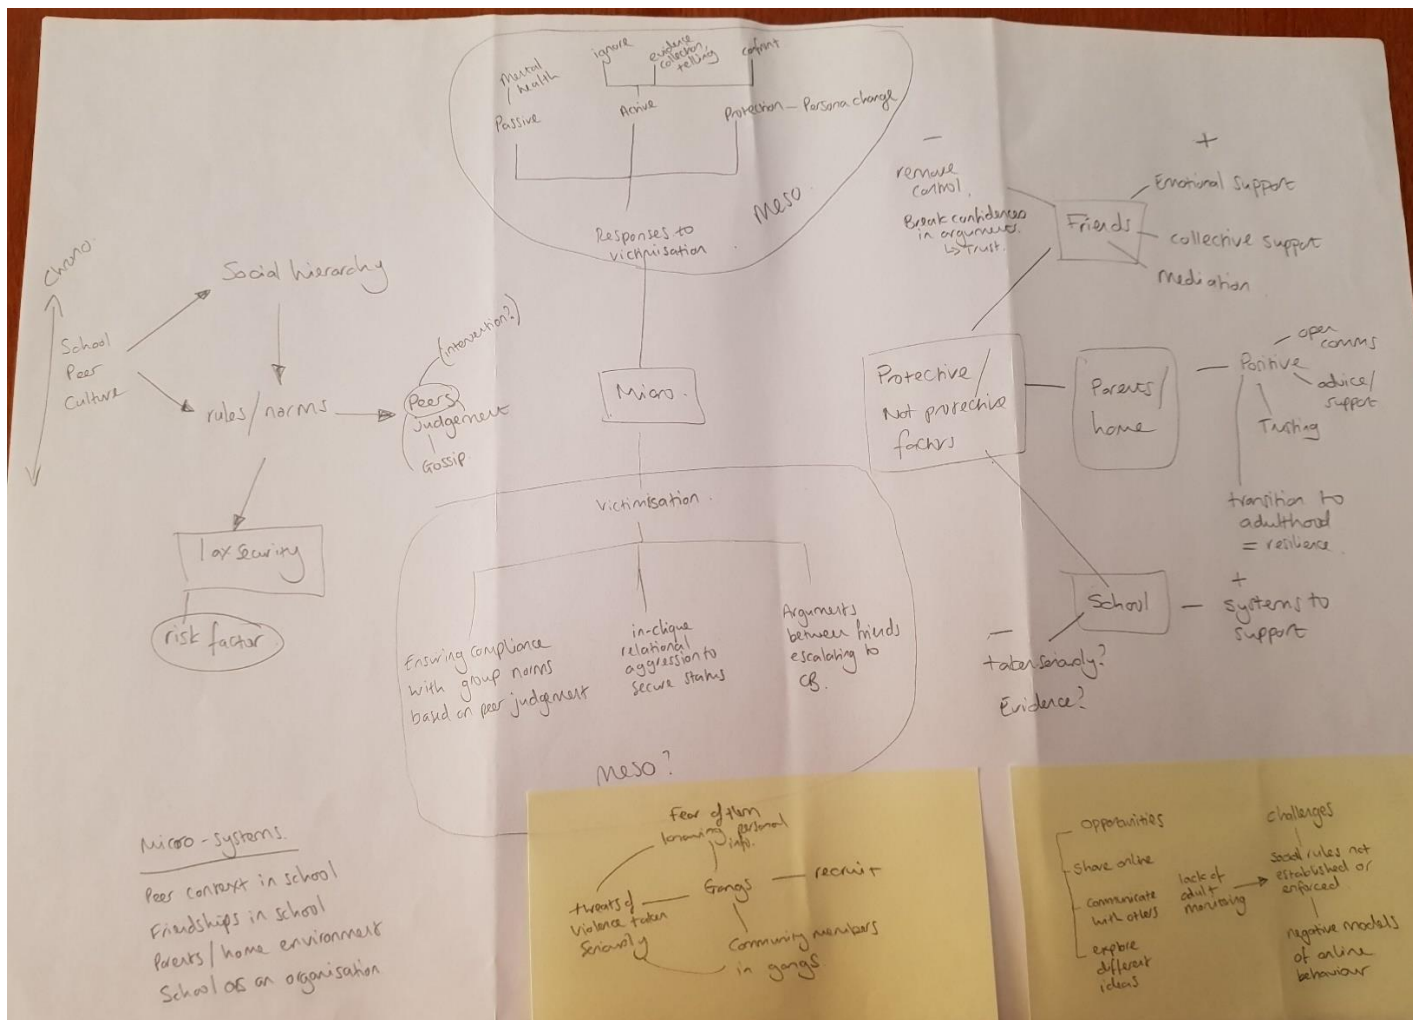 Mental
health
Passive
ignore
evidence
collection
telling
confront
Active
Protection - Persona change
Meso.
Responses to
victimisation
Chrono.
School
Peer
Culture
Social hierarchy
rules/norms
(intervention?)
Peers
judgement
Gossip.
lax security
risk factor
Micro.
Victimisation.
Ensuring compliance
with group norms
based on peer judgement
in-clique
relational
aggression to
secure status
Arguments
between friends
escalating to
CB.
Meso?
-
remove
control.
Break confidences
in arguments.
↳ Trust.
+
Friends
Emotional support
collective support
Mediation
Protective/
Not protective
factors
Parents/
home
Positive
open
comms
advice/
support
Trusting
transition to
adulthood
= resilience.
School
+
systems to
support
-
taken seriously?
Evidence?
Micro-systems.
Peer context in school
Friendships in school
Parents/home environment
School as an organisation
Fear of them
knowing personal
info.
Gangs
recruit
threats of
violence taken
seriously
Community members
in gangs
opportunities
share online
communicate
with others
explore
different
ideas
lack of
adult
monitoring
challenges
social rules not
established or
enforced
negative models
of online
behaviour